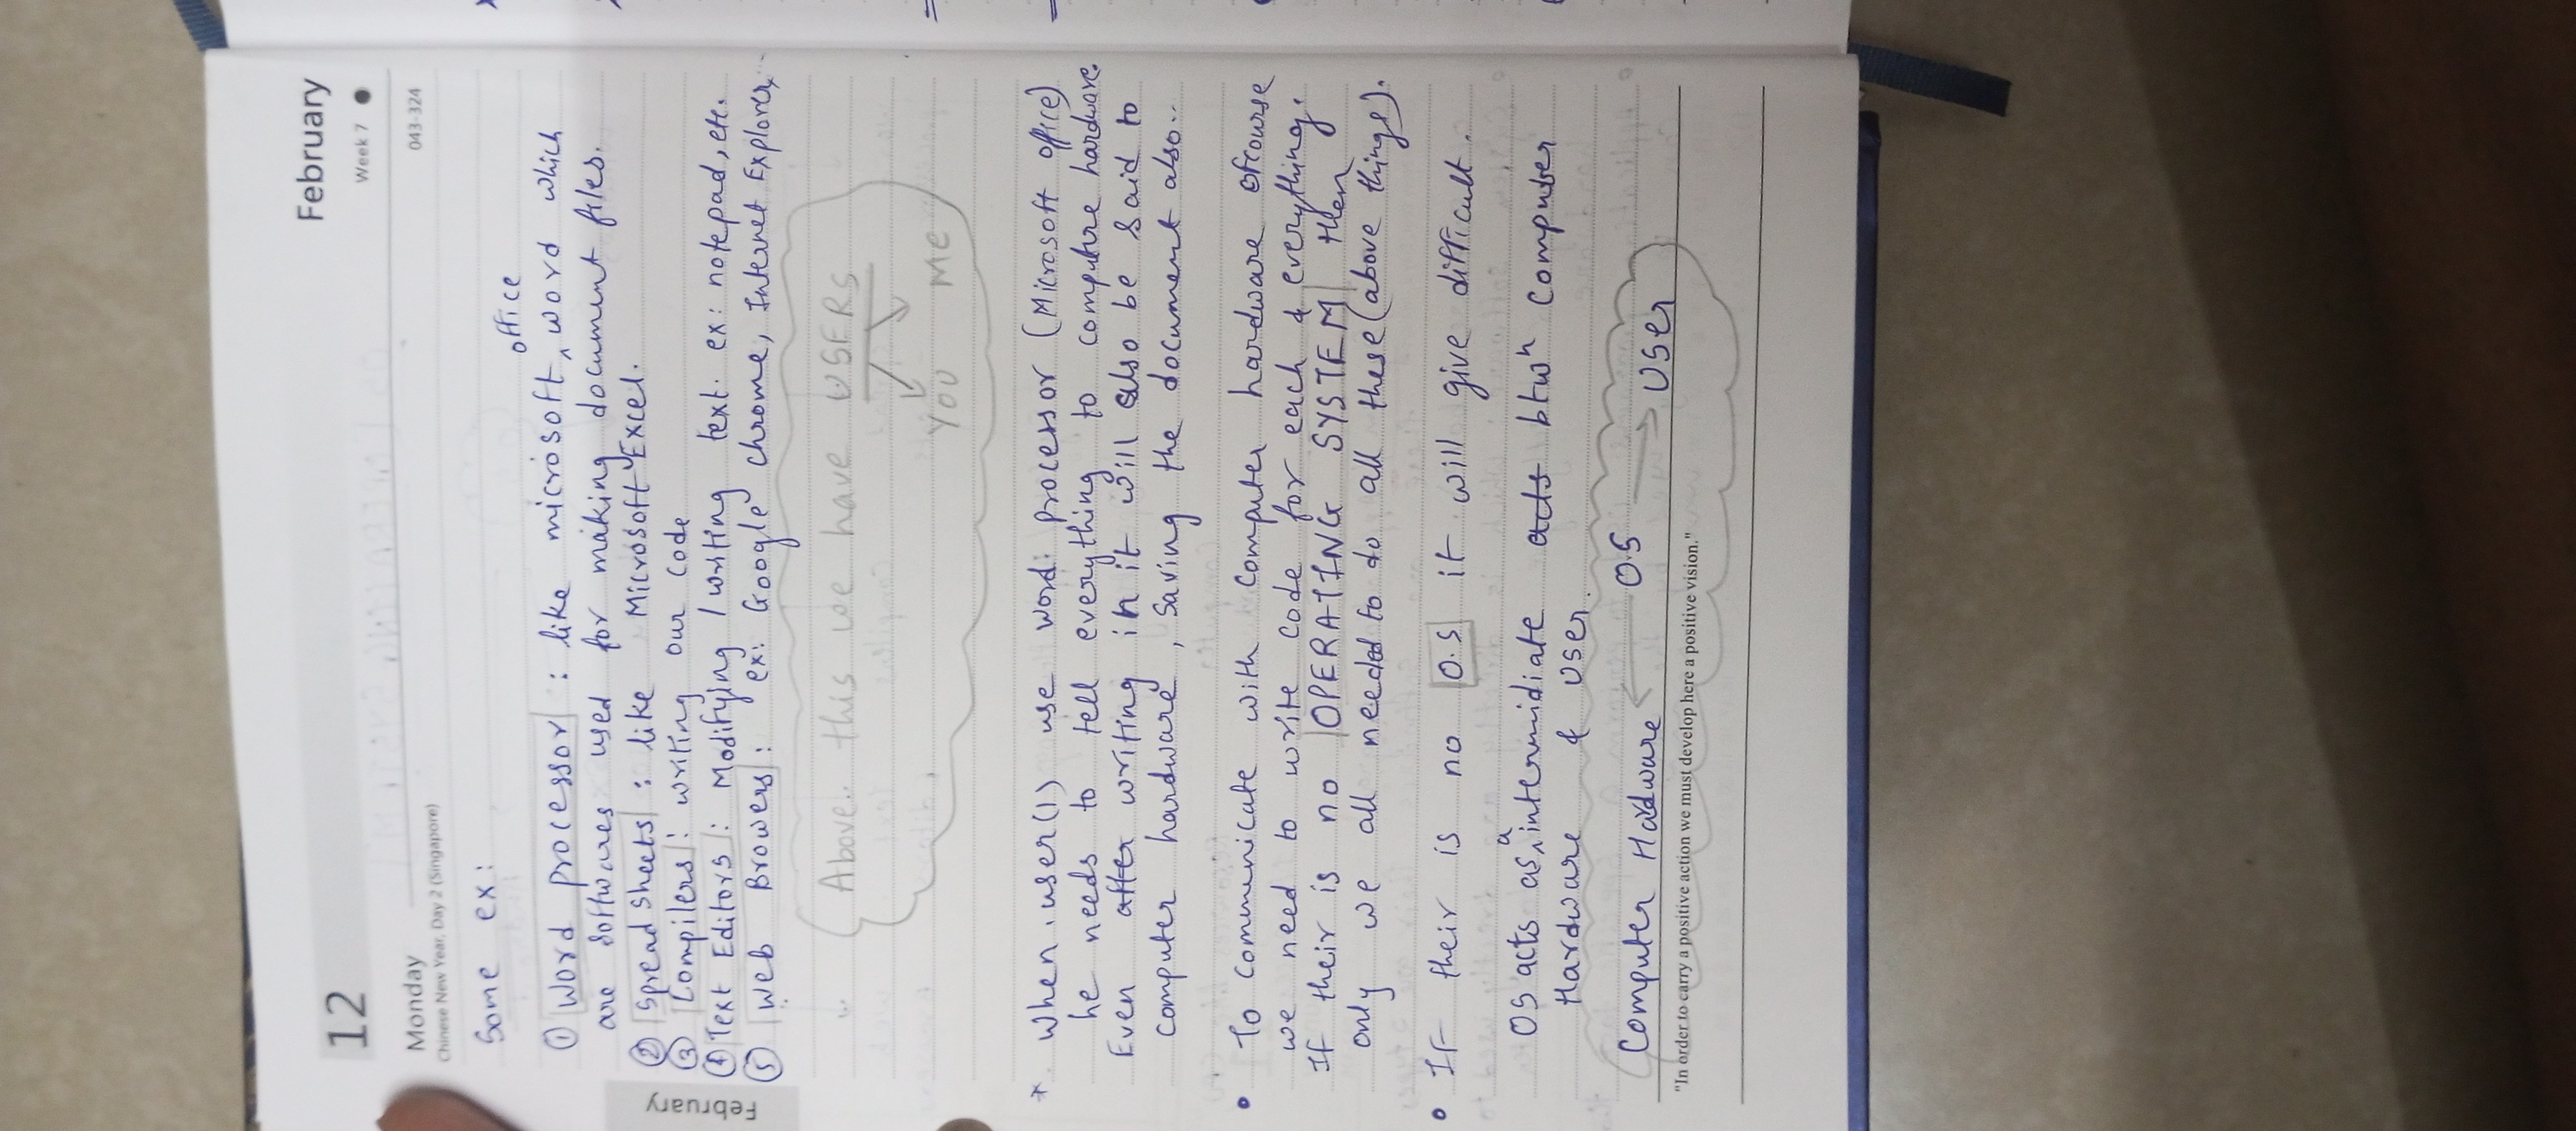 12
February
Monday
Week 7
Chinese New Year, Day 2 (Singapore)
043-324
February
Some ex:
office
① Word processor : like microsoft ^ word which
are softwares used for making document files.
② Spread sheets : like Microsoft Excel.
③ Compilers : writing our code
④ Text Editors : Modifying / writing text. ex: notepad, etc.
⑤ Web Browers : ex: Google chrome, Internet Explorer..
Above.. this we have USERS
YOU Me
* When user(1) use word processor (Microsoft office)
he needs to tell everything to computre hardware.
Even after writing in it will also be said to
computer hardware, saving the document also..
• To communicate with computer hardware ofcourse
we need to write code for each & everything.
If their is no OPERATING SYSTEM then
only we all needed to do all these (above things).
• If their is no O.S it will give difficult.
OS acts as ^a intermidiate acts btwn computer
Hardware & user.
Computer Hardware ← O.S → User
"In order to carry a positive action we must develop here a positive vision."